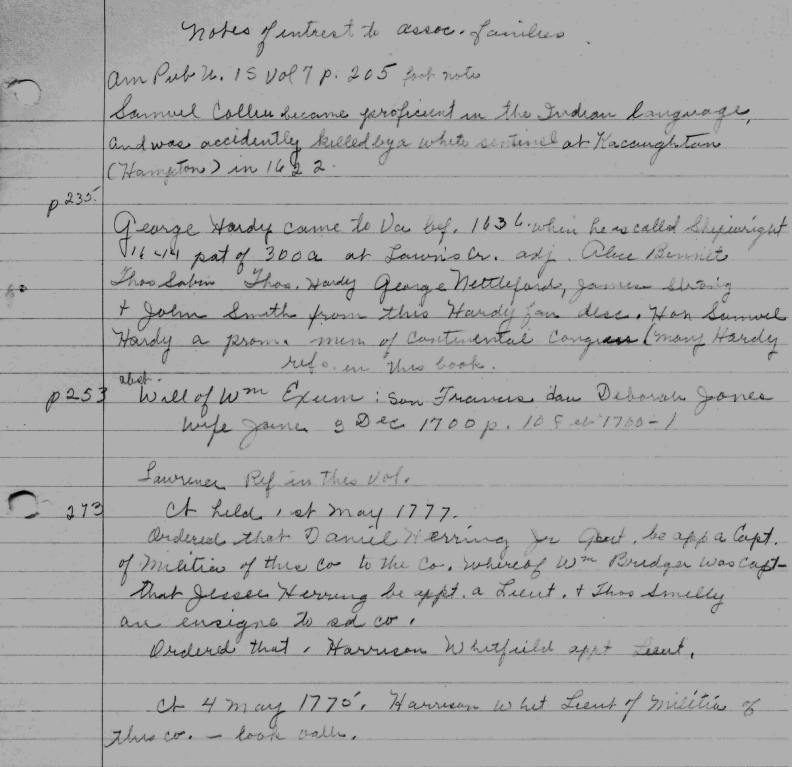 Notes of interest to assoc. families
Am Pub U. 15 Vol 7 p. 205 foot note
Samuel Collier became proficient in the Indian language,
and was accidently killed by a white sentinel at Kacoughtan
(Hampton) in 1622.
p 235.
George Hardy came to Va bef. 1636 when he is called Shipwright
pat of 300 a at Lawns Cr. adj. Alice Bennet
Thos Sabin Thos. Hardy George Nettleford, James Strong
+ John Smith from this Hardy fam desc. Hon Samuel
Hardy a prom. mem of Continental Congress (many Hardy
refs. in this book.
abst.
p 253 Will of Wm Exum: son Francis dau Deborah Jones
Wife Jane 3 Dec 1700 p. 1700-1
Lawrence Ref in this Vol.
273 Ct held 1st May 1777.
Ordered that Daniel Herring Jr Gent. be app a Capt.
of Militia of this co to the Co. whereof Wm Bridger was Capt-
that Jessee Herring be appt. a Lieut. + Thos Smelly
an ensigne to sd co.
Ordered that Harrison Whitfield appt Lieut.
Ct 4 May 1775. Harrison Whit Lieut of Militia of
this co. - took oath.